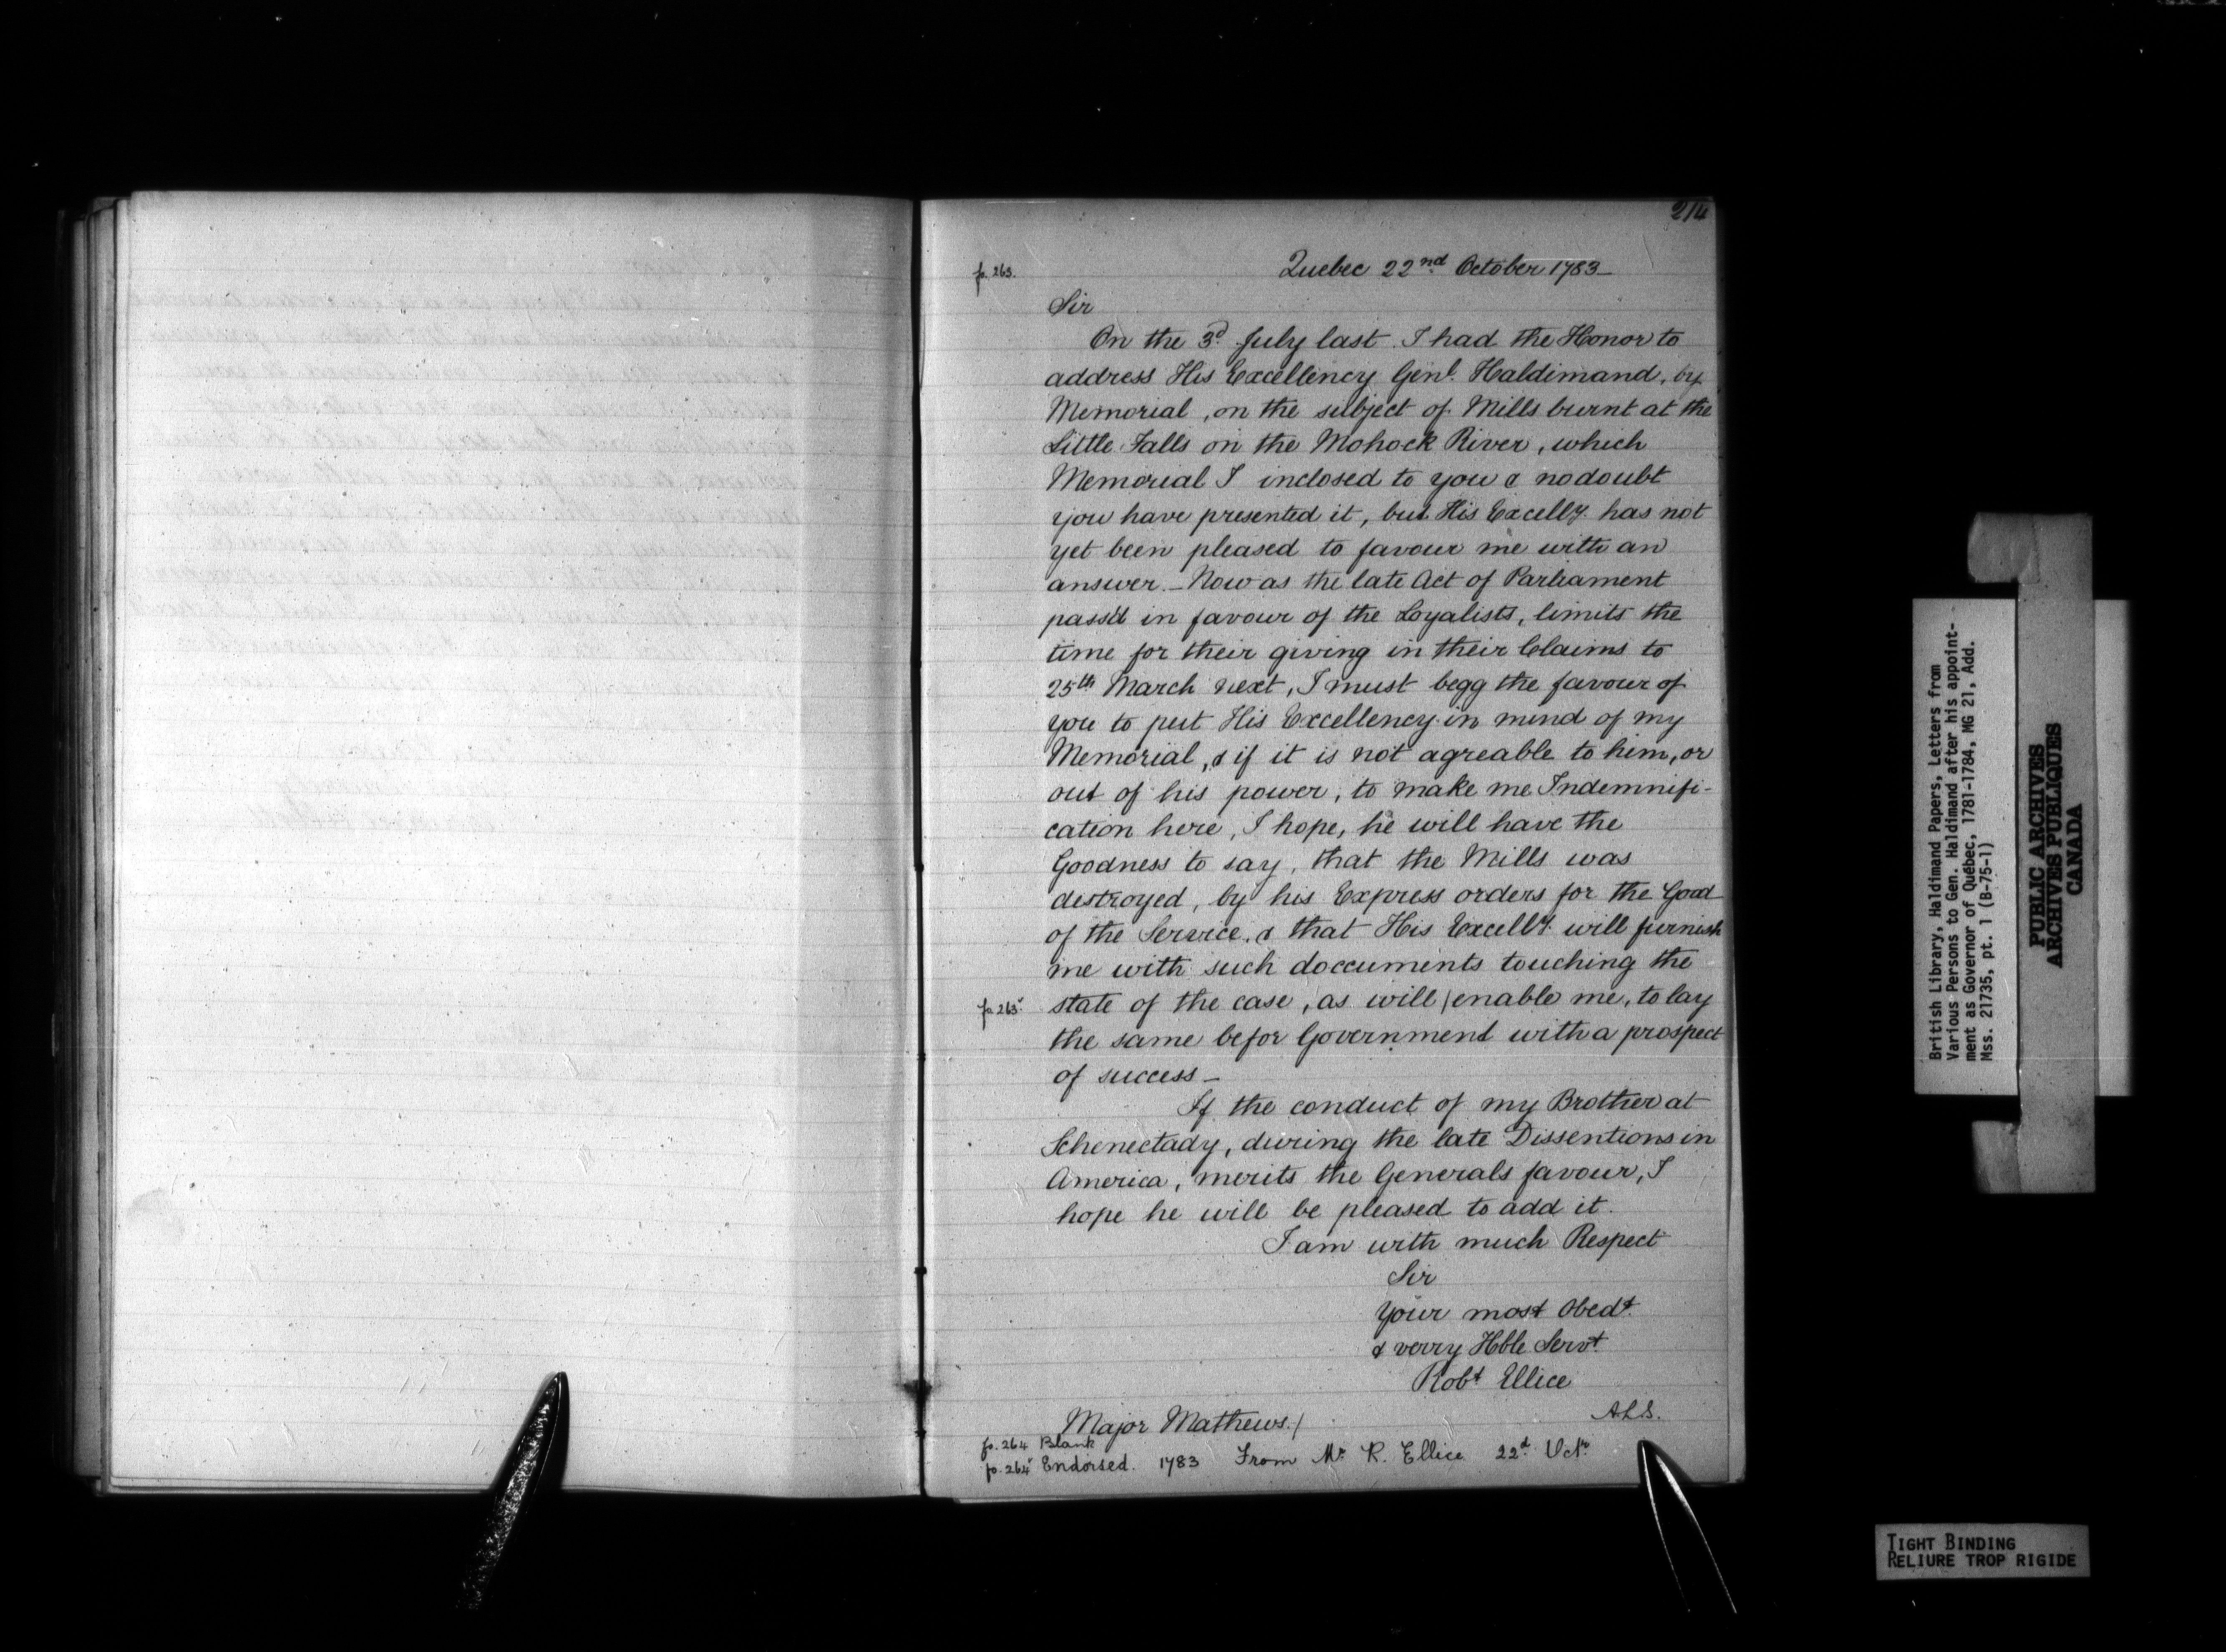 214
fo. 263.
Quebec 22nd October 1783_
Sir
On the 3d July last I had the Honor to
address His Excellency Genl. Haldimand, by
Memorial, on the subject of Mills burnt at the
Little Falls on the Mohock River, which
Memorial I inclosed to you & no doubt
you have presented it, but His Excelly. has not
yet been pleased to favour me with an
answer._ Now as the late Act of Parliament
pass'd in favour of the Loyalists, limits the
time for their giving in their Claims to
25th March next, I must begg the favour of
you to put His Excellency in mind of my
Memorial, & if it is not agreable to him, or
out of his power, to make me Indemnifi-
cation here, I hope, he will have the
Goodness to say, that the Mills was
destroyed, by his Express orders for the Good
of the Service, & that His Excelly. will furnish
me with such doccuments touching the
fo. 263v state of the case, as will / enable me, to lay
the same befor Government with a prospect
of success _
If the conduct of my Brother at
Schenectady, during the late Dissentions in
America, merits the Generals favour, I
hope he will be pleased to add it.
I am with much Respect
Sir
Your most Obedt.
& verry Hble Servt.
Robt Ellice
A.L.S.
Major Mathews./
fo. 264 Blank
fo. 264v Endorsed. 1783 From Mr. R. Ellice 22d Octr.
British Library, Haldimand Papers, Letters from
Various Persons to Gen. Haldimand after his appoint-
ment as Governor of Québec, 1781-1784, MG 21, Add.
Mss. 21735, pt. 1 (B-75-1)
PUBLIC ARCHIVES
ARCHIVES PUBLIQUES
CANADA
TIGHT BINDING
RELIURE TROP RIGIDE